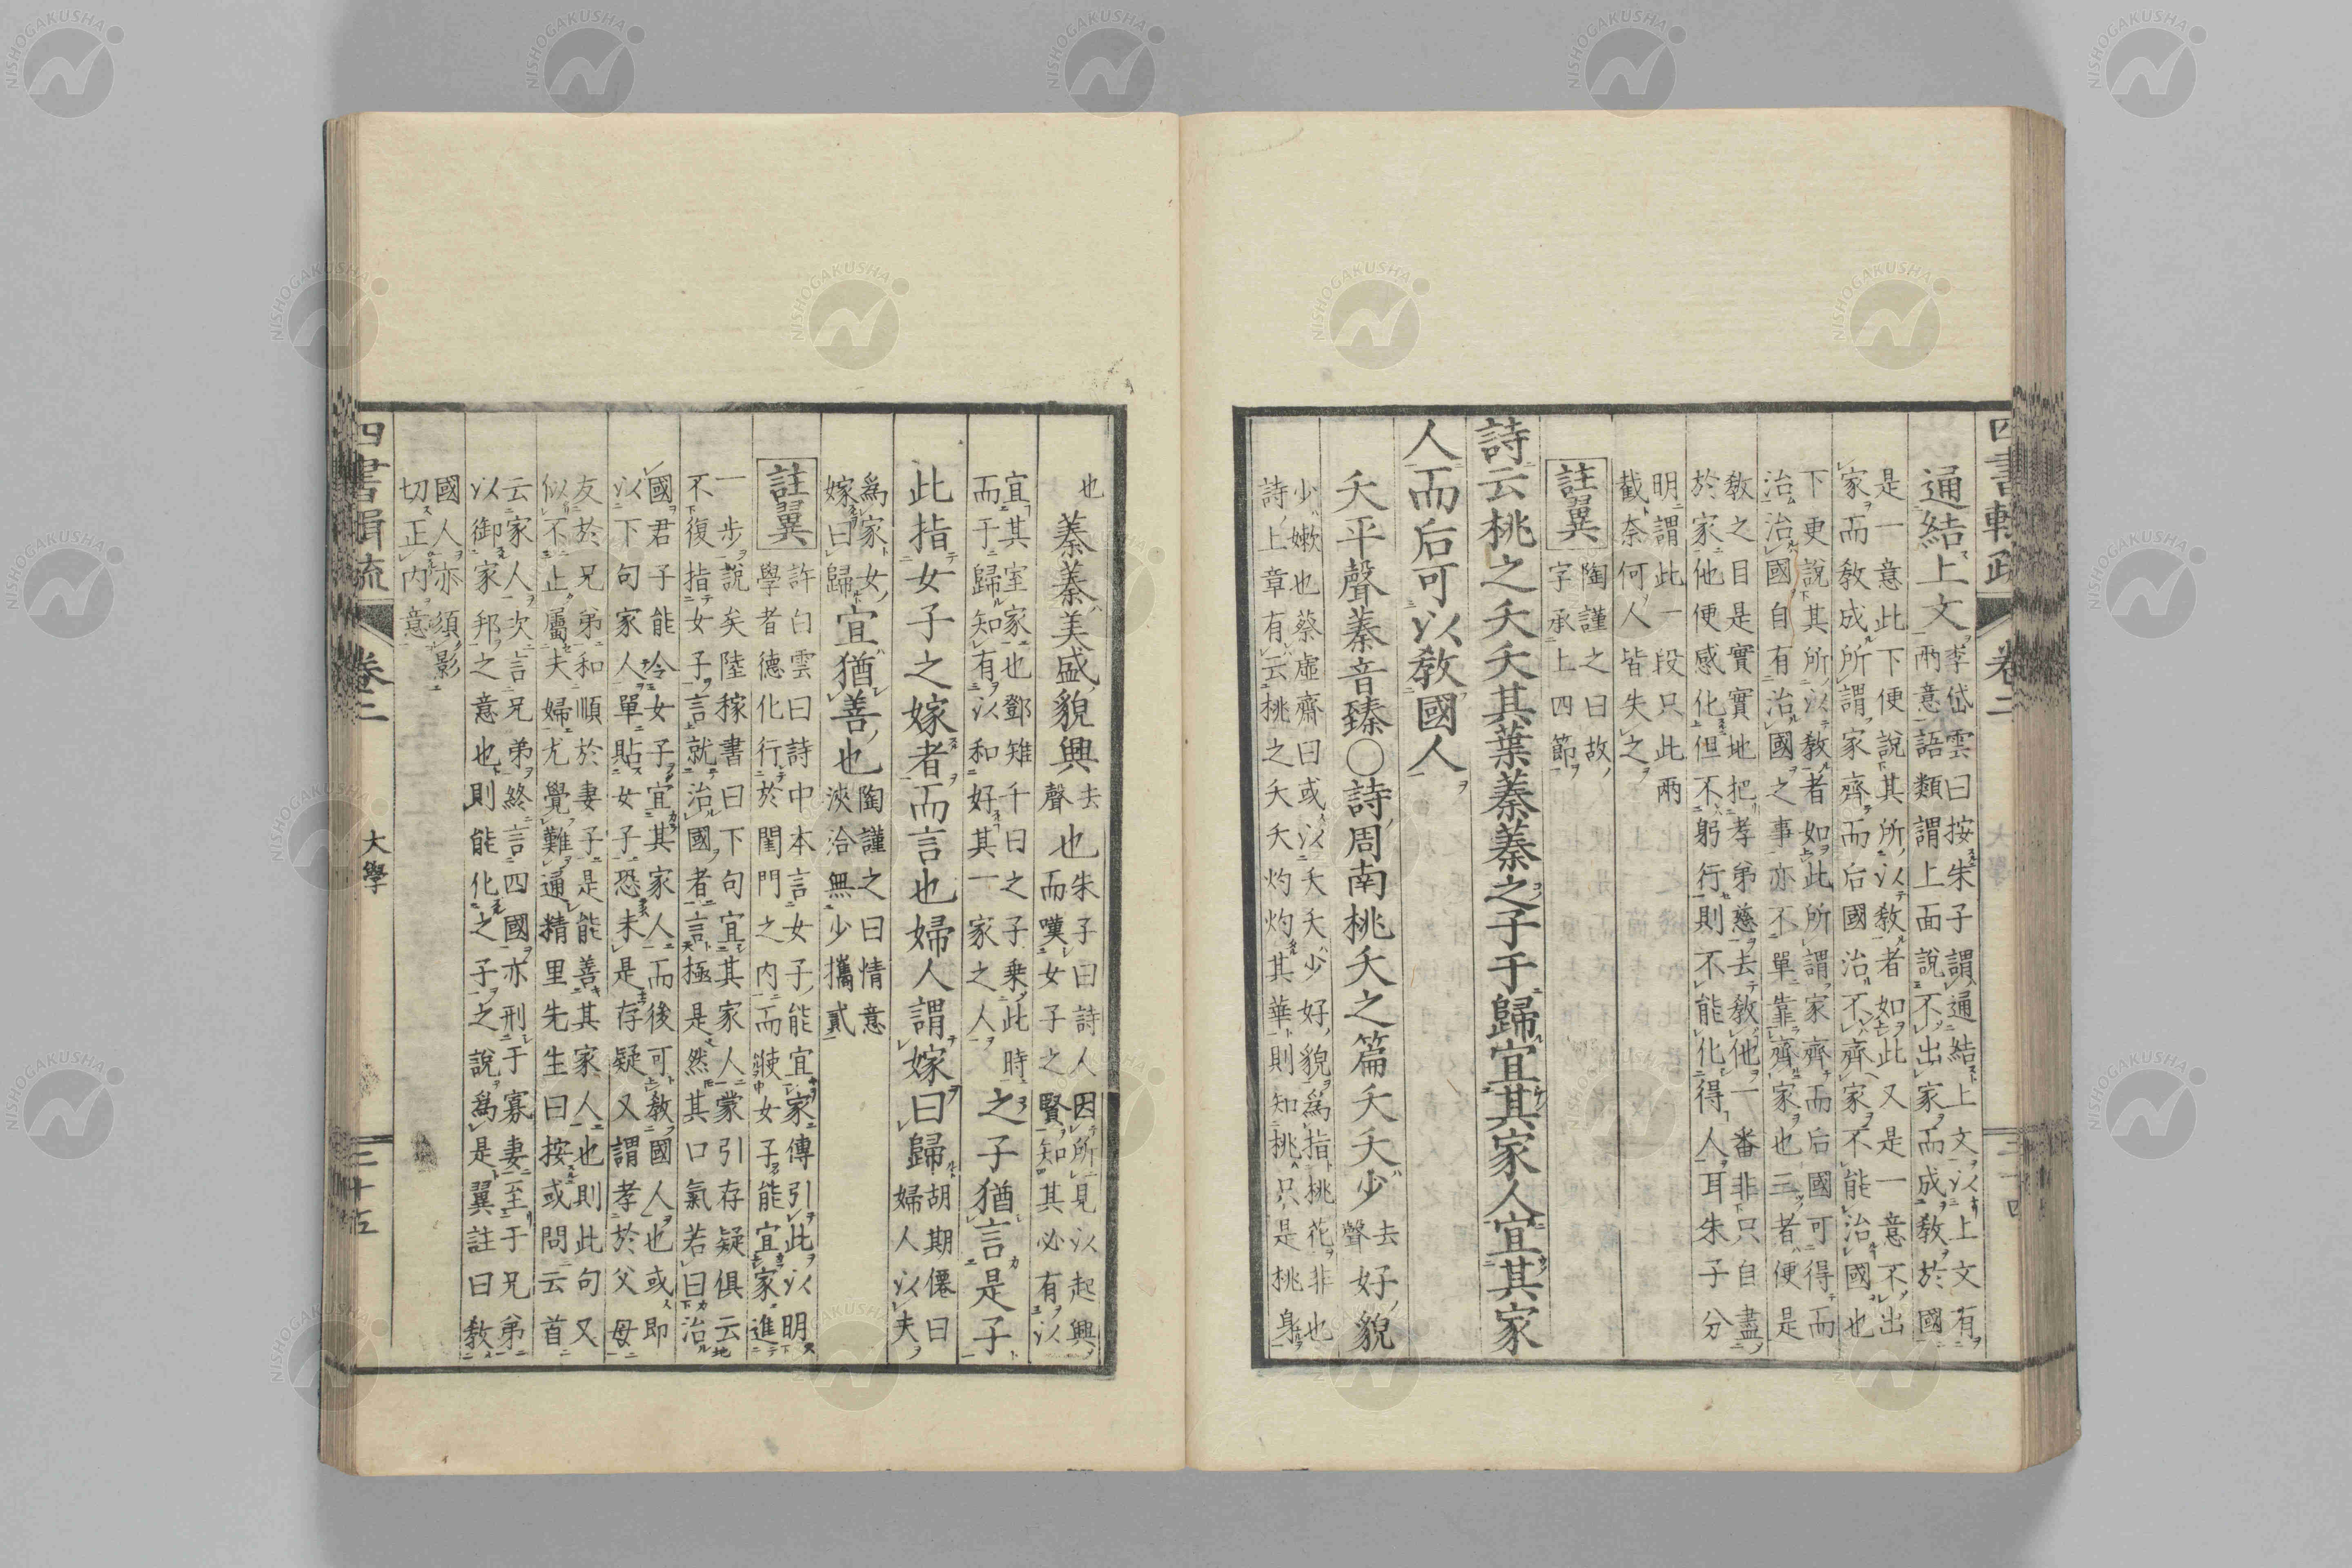 四書輯疏 卷二
通結上文
李岱雲曰按朱子謂通結上文以上文有
兩意語類謂上面說不出家而成敎於國
是一意此下便說其所以敎者如此又是一意不出
家而敎成所謂家齊而后國治不齊家不能治國也
下更說其所以敎者如此所謂家齊而后國可得而
治治國自有治國之事亦不單靠齊家也三者便是
敎之目是實實地把孝弟慈去敎他一番非只自盡
於家他便感化但不躬行則不能化得人耳朱子分
明謂此一段只此兩
截奈何人皆失之
註翼
陶謹之曰故
字承上四節
詩云桃之夭夭其葉蓁蓁之子于歸宜其家人宜其家
人而后可以敎國人
夭平聲蓁音臻○詩周南桃夭之篇夭夭少去聲好貌
少嫩也蔡虛齋曰或以夭夭少好貌爲指桃花非也
詩上章有云桃之夭夭灼灼其華則知桃只是桃身
也蓁蓁美盛貌興去聲也
朱子曰詩人因所見以起興
而嘆女子之賢知其必有以
宜其室家也鄧雉千曰之子乘此時
而于歸知有以和好其一家之人
之子猶言是子
此指女子之嫁者而言也婦人謂嫁曰歸
胡期僊曰
婦人以夫
爲家女
嫁曰歸
宜猶善也
陶謹之曰情意
浹洽無少攜貳
註翼
許白雲曰詩中本言女子能宜家傳引此以明
學者德化行於閨門之內而使女子能宜家進
一步說矣陸稼書曰下句宜其家人蒙引存疑俱云
不復指女子言就治國者言極是然其口氣若曰治
國君子能令女子宜其家人而後可敎國人也或即
以下句家人單貼女子恐未是存疑又謂孝於父母
友於兄弟和順於妻子是能善其家人也則此句又
似不上屬夫婦尤覺難通精里先生曰按或問云首
云家人次言兄弟終言四國亦刑于寡妻至于兄弟
以御家邦之意也則能化之子之說爲是翼註曰敎
國人亦須影
切正內意
四書輯疏 卷二 大學 三十五